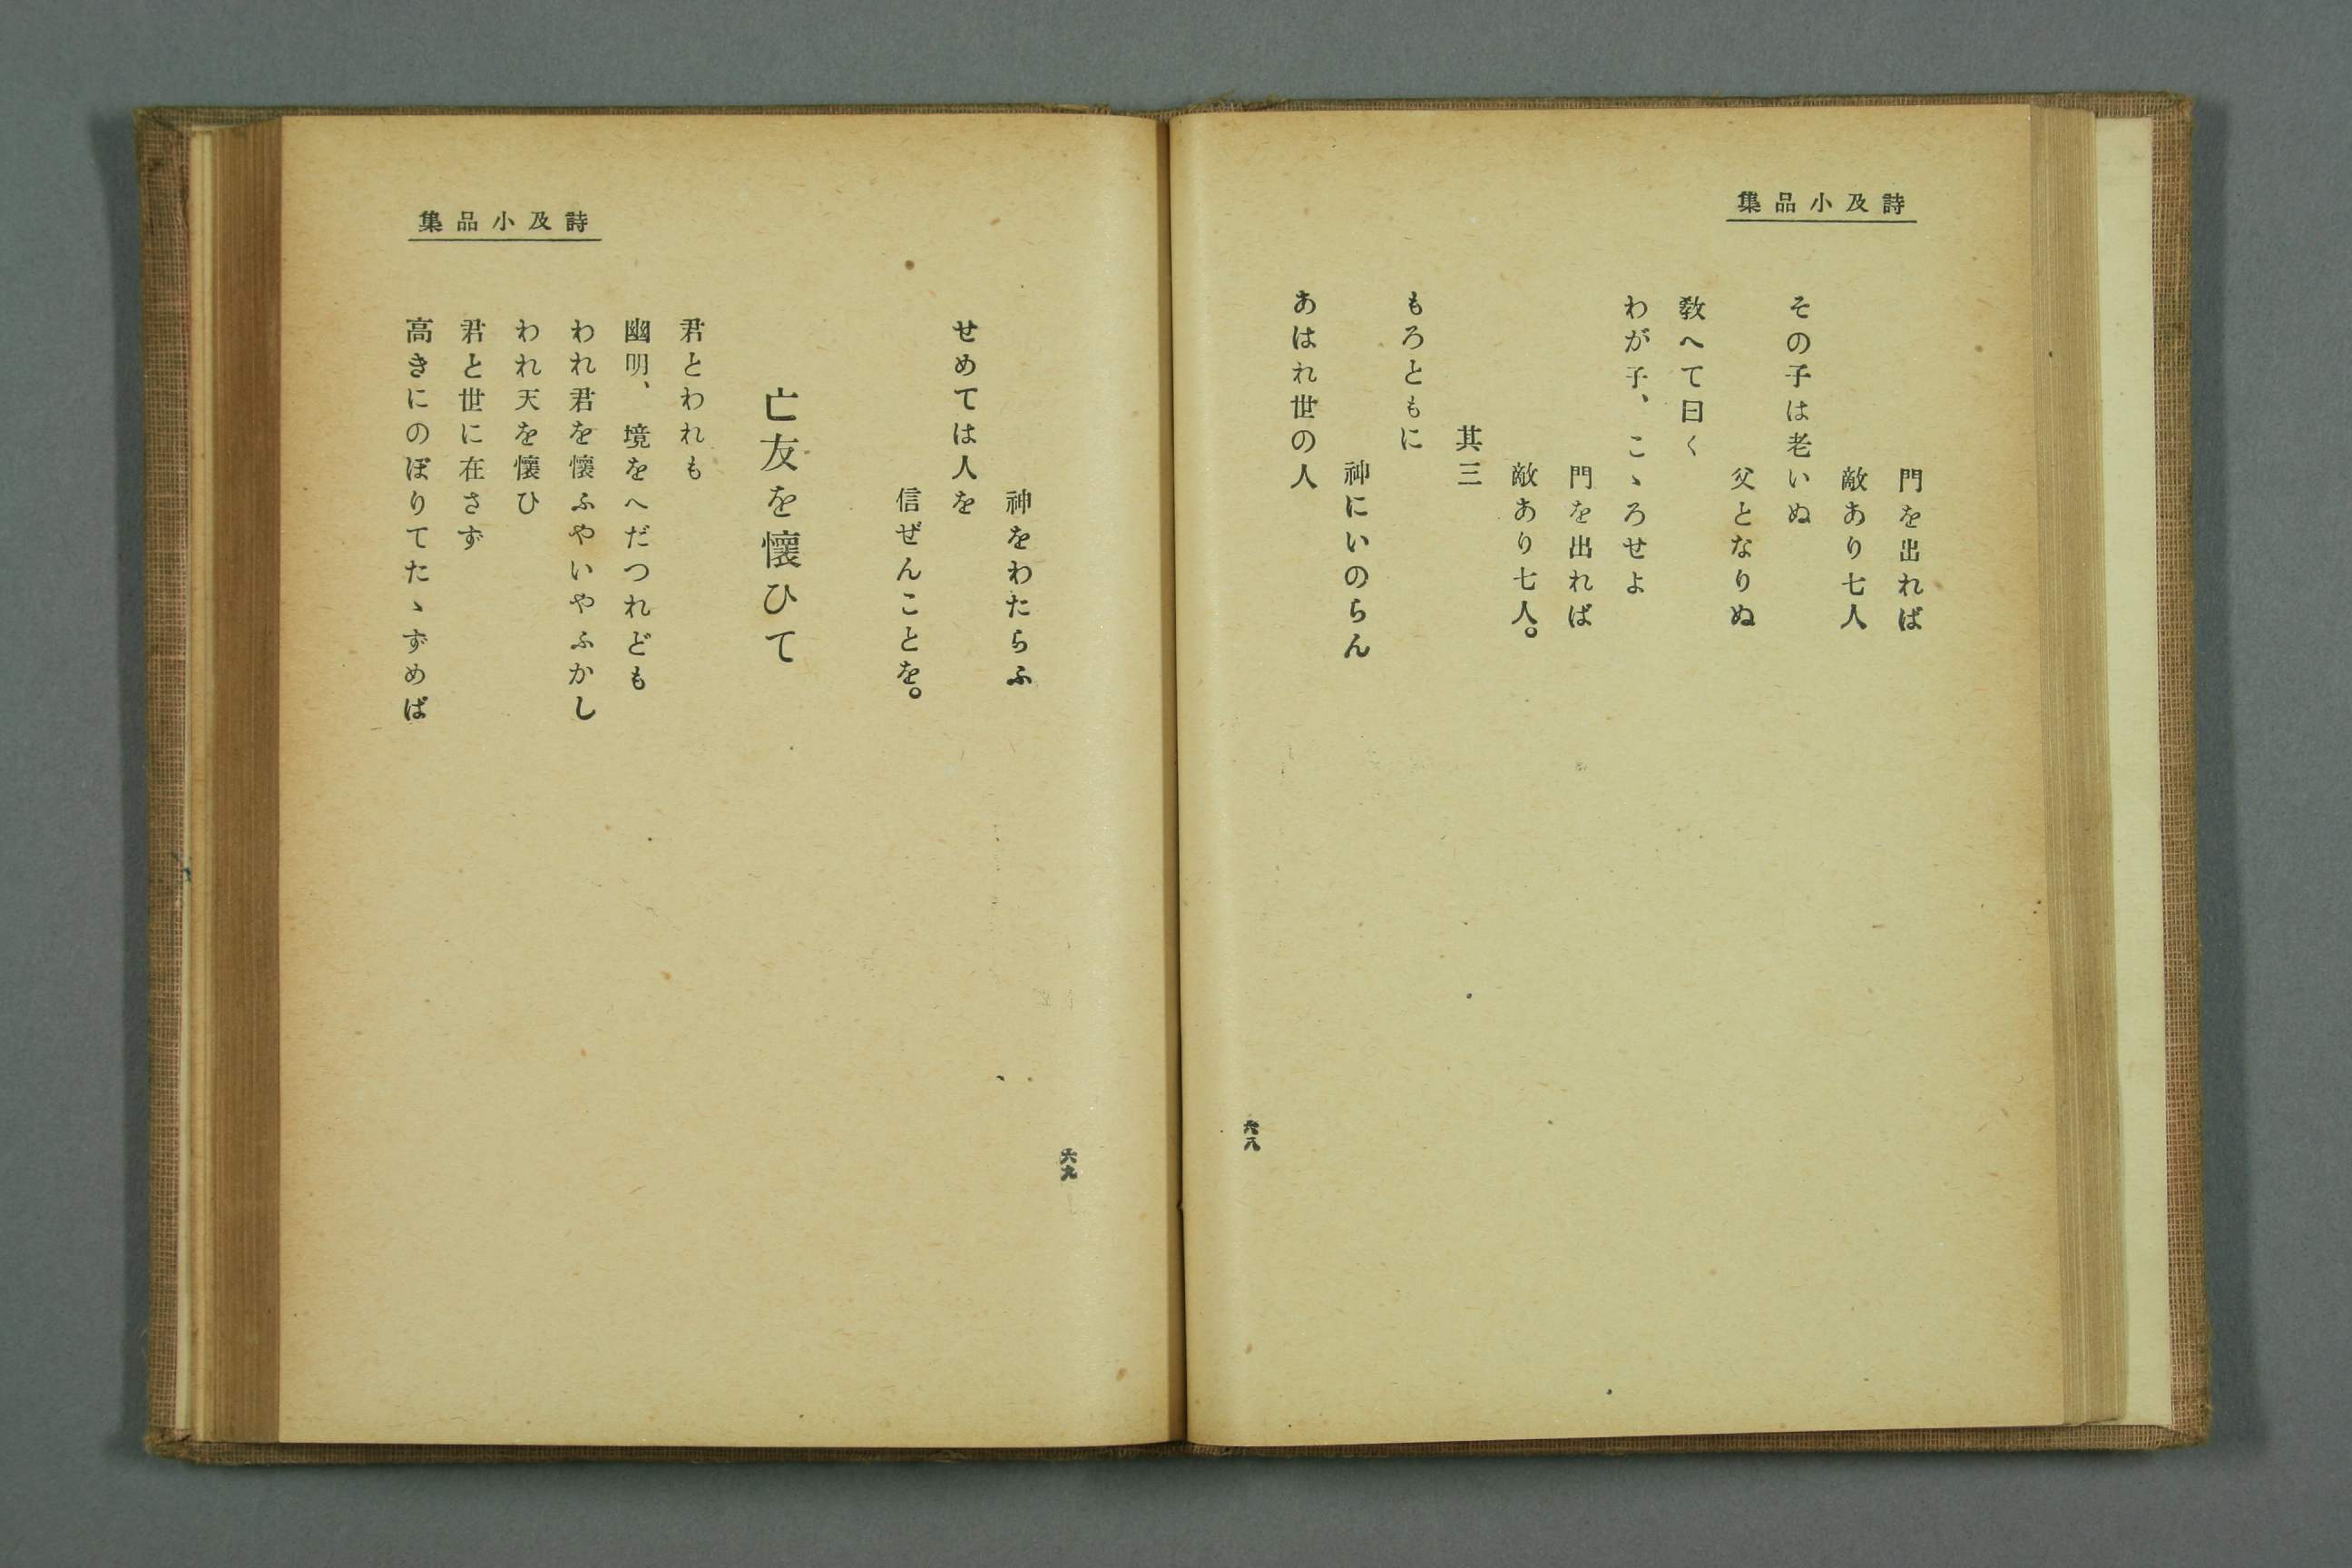 詩及小品集
門を出れば
敵あり七人
その子は老いぬ
父となりぬ
敎へて曰く
わが子、こゝろせよ
門を出れば
敵あり七人。
其三
もろともに
神にいのらん
あはれ世の人
六八
詩及小品集
神をわたらふ
せめては人を
信ぜんことを。
亡友を懷ひて
君とわれも
幽明、境をへだつれども
われ君を懷ふやいやふかし
われ天を懷ひ
君と世に在さず
高きにのぼりてたゝずめば
六九